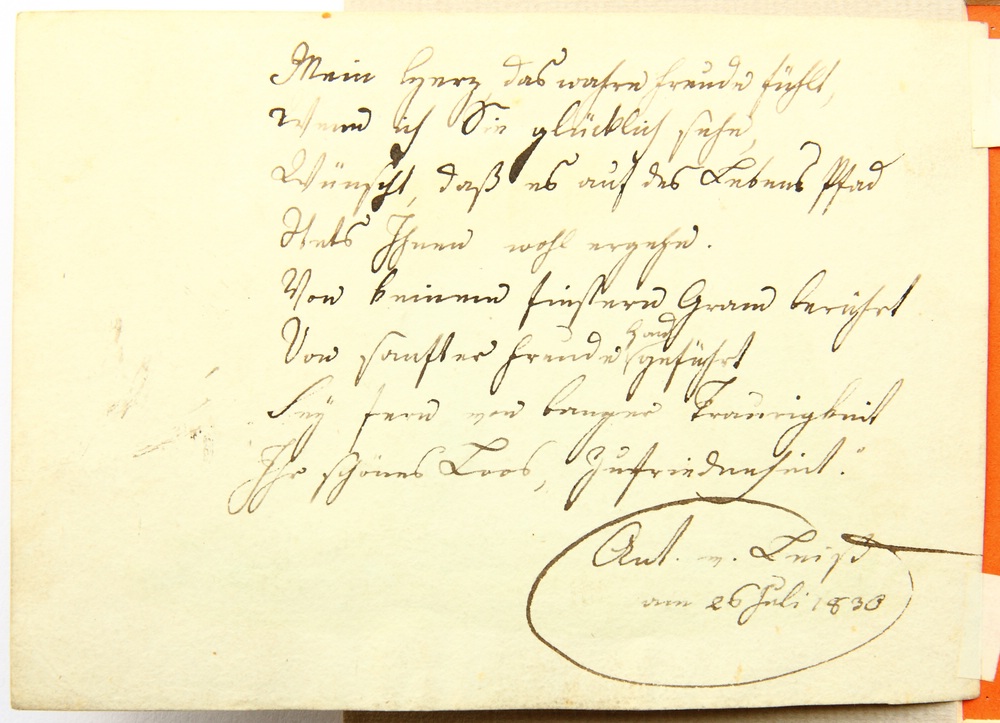 Mein Herz, das wahre Freude fühlt,
Wenn ich Sie glücklich sehe,
Wünscht, daß es auf des Lebens Pfad
Stets Ihnen wohl ergehe.
Von keinem finstern Gram berührt
Von sanfter Freude Hand geführt
Sey fern von banger Traurigkeit
Ihr schönes Loos, Zufriedenheit."
Ant. v. Leist
am 26 Juli 1830